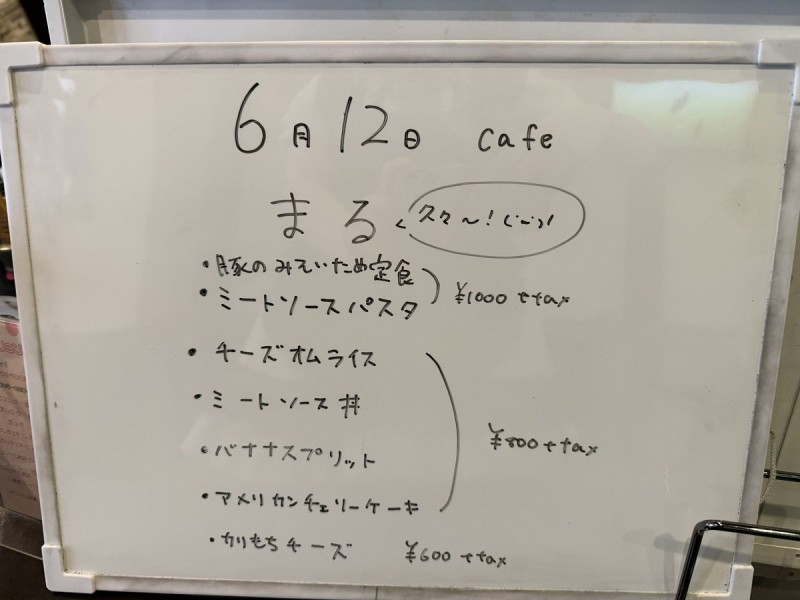 6月12日 cafe
まる
久々〜!
・豚のみそいため定食
・ミートソースパスタ
¥1000+tax
・チーズオムライス
・ミートソース丼
・バナナスプリット
・アメリカンチェリーケーキ
¥800+tax
・カリもちチーズ ¥600+tax